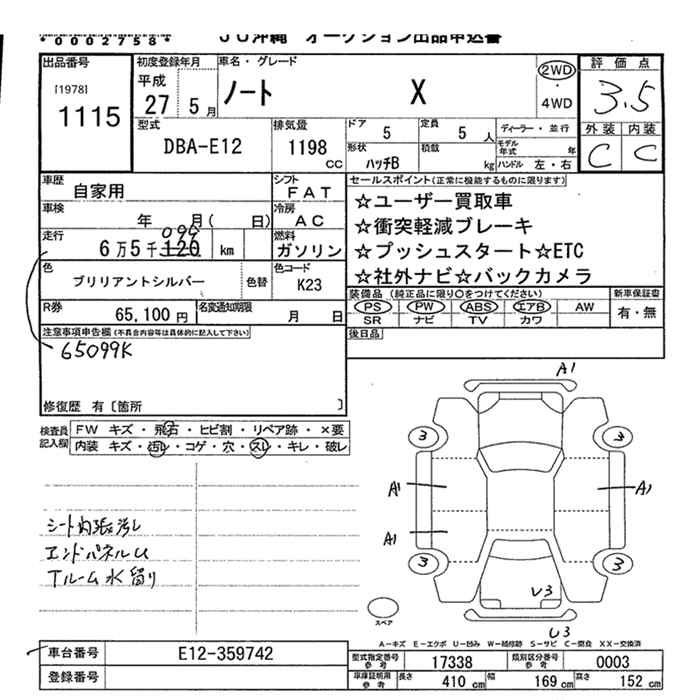 *0002758*
JU沖縄 オークション出品申込書
出品番号
[1978]
1115
初度登録年月
平成
27 5月
車名・グレード
ノート X
2WD
・
4WD
評価点
3.5
外装 内装
C C
型式
DBA-E12
排気量
1198
CC
ドア
5
定員
5 人
ディーラー・並行
形状
ハッチB
積載
kg
モデル年式 年
ハンドル 左・右
車歴
自家用
シフト
FAT
車検
年 月( 日)
冷房
AC
走行
099
6万5千120 km
燃料
ガソリン
色
ブリリアントシルバー
色替
色コード
K23
R券
65,100円
名変通知期限
月 日
セールスポイント(正常に機能するものに限ります)
☆ユーザー買取車
☆衝突軽減ブレーキ
☆プッシュスタート☆ETC
☆社外ナビ☆バックカメラ
装備品(純正品に限り○をつけてください)
PS PW ABS エアB AW
SR ナビ TV カワ
新車保証書
有・無
後日品
注意事項申告欄(不具合内容等は具体的に記入して下さい)
65099K
修復歴 有〔箇所 〕
検査員記入欄
FW キズ・飛石・ヒビ割・リペア跡・×要
内装 キズ・汚レ・コゲ・穴・スレ・キレ・破レ
シート内張汚レ
エンドパネルU
Tルーム水留り
A1
3 3
A1 A1
A1
3 3
U3
U3
スペア
A-キズ E-エクボ U-凹み W-補修跡 S-サビ C-腐食 XX-交換済
車台番号
E12-359742
登録番号
型式指定番号
参考
17338
類別区分番号
参考
0003
車庫証明用
参考
長さ
410 cm
幅
169 cm
高さ
152 cm